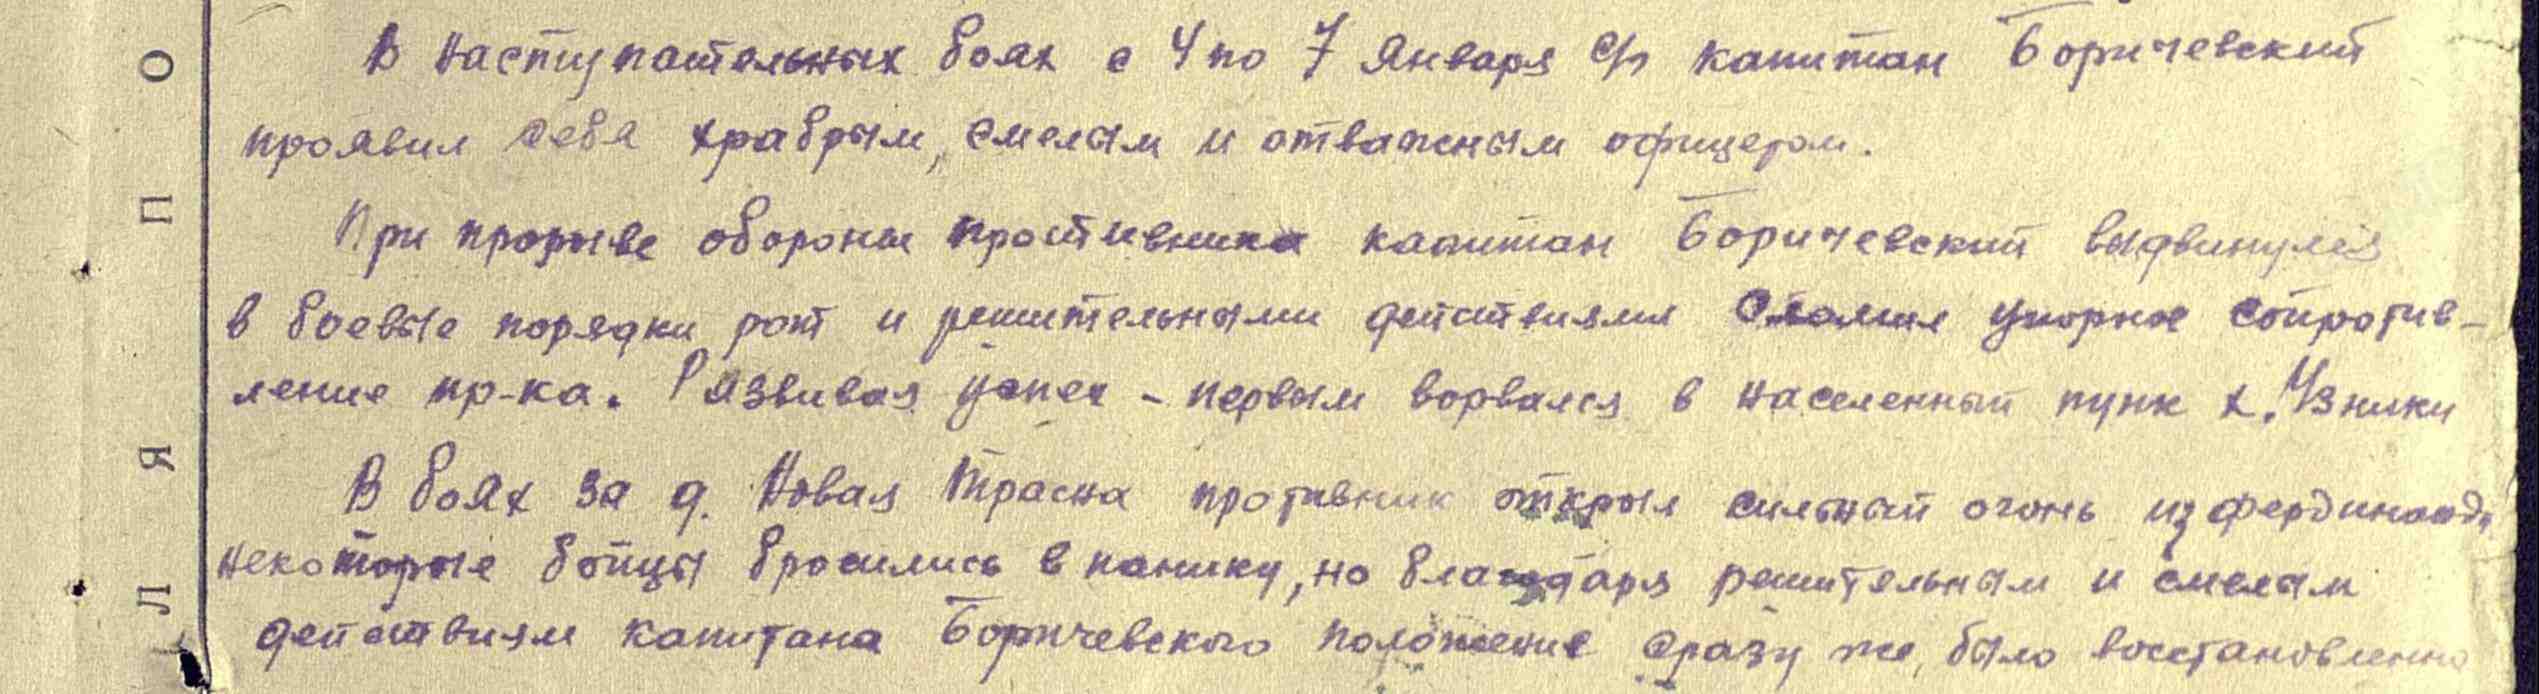 В наступательных боях с 4 по 7 января с/г капитан Боричевский
проявил себя храбрым, смелым и отважным офицером.
При прорыве обороны противника капитан Боричевский выдвинулся
в боевые порядки рот и решительными действиями сломил упорное сопротив-
ление пр-ка. Развивая успех - первым ворвался в населенный пунк х. Узники
В боях за д. Новая Трасна противник открыл сильный огонь из фердинанда,
некоторые бойцы бросились в панику, но благодаря решительным и смелым
действиям капитана Боричевского положение сразу же было восстановленно
О
П
Я
Л